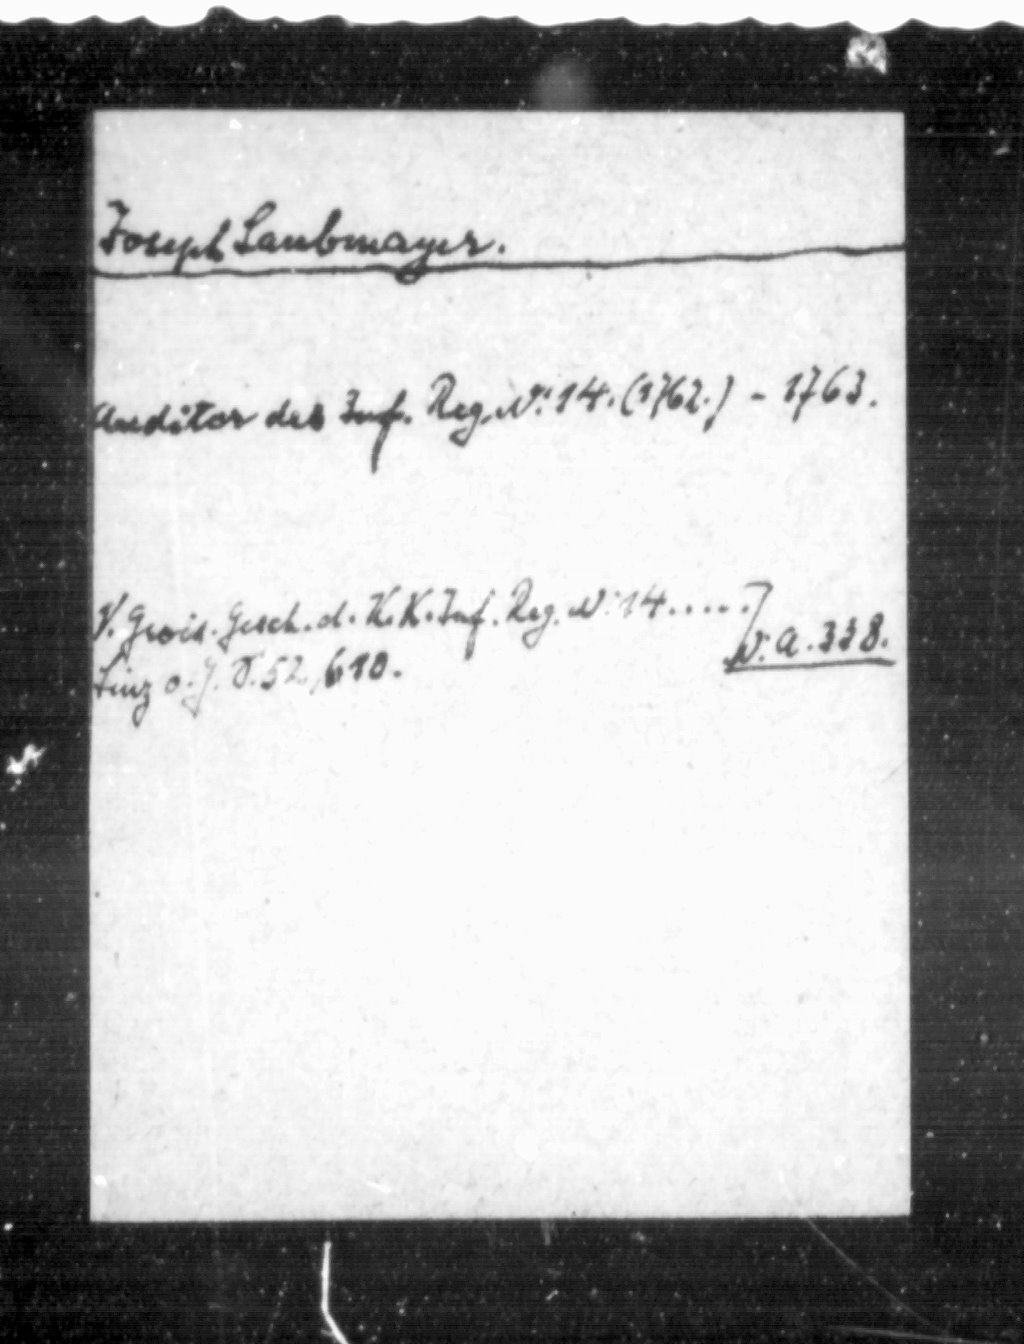 Joseph Laubmayer.
Auditor des Inf. Reg. Nr. 14. (1762.) - 1763.
V. Grois. Gesch. d. K. K. Inf. Reg. Nr. 14.....]
Linz o. J. S. 52, 610.
W. A. 338.